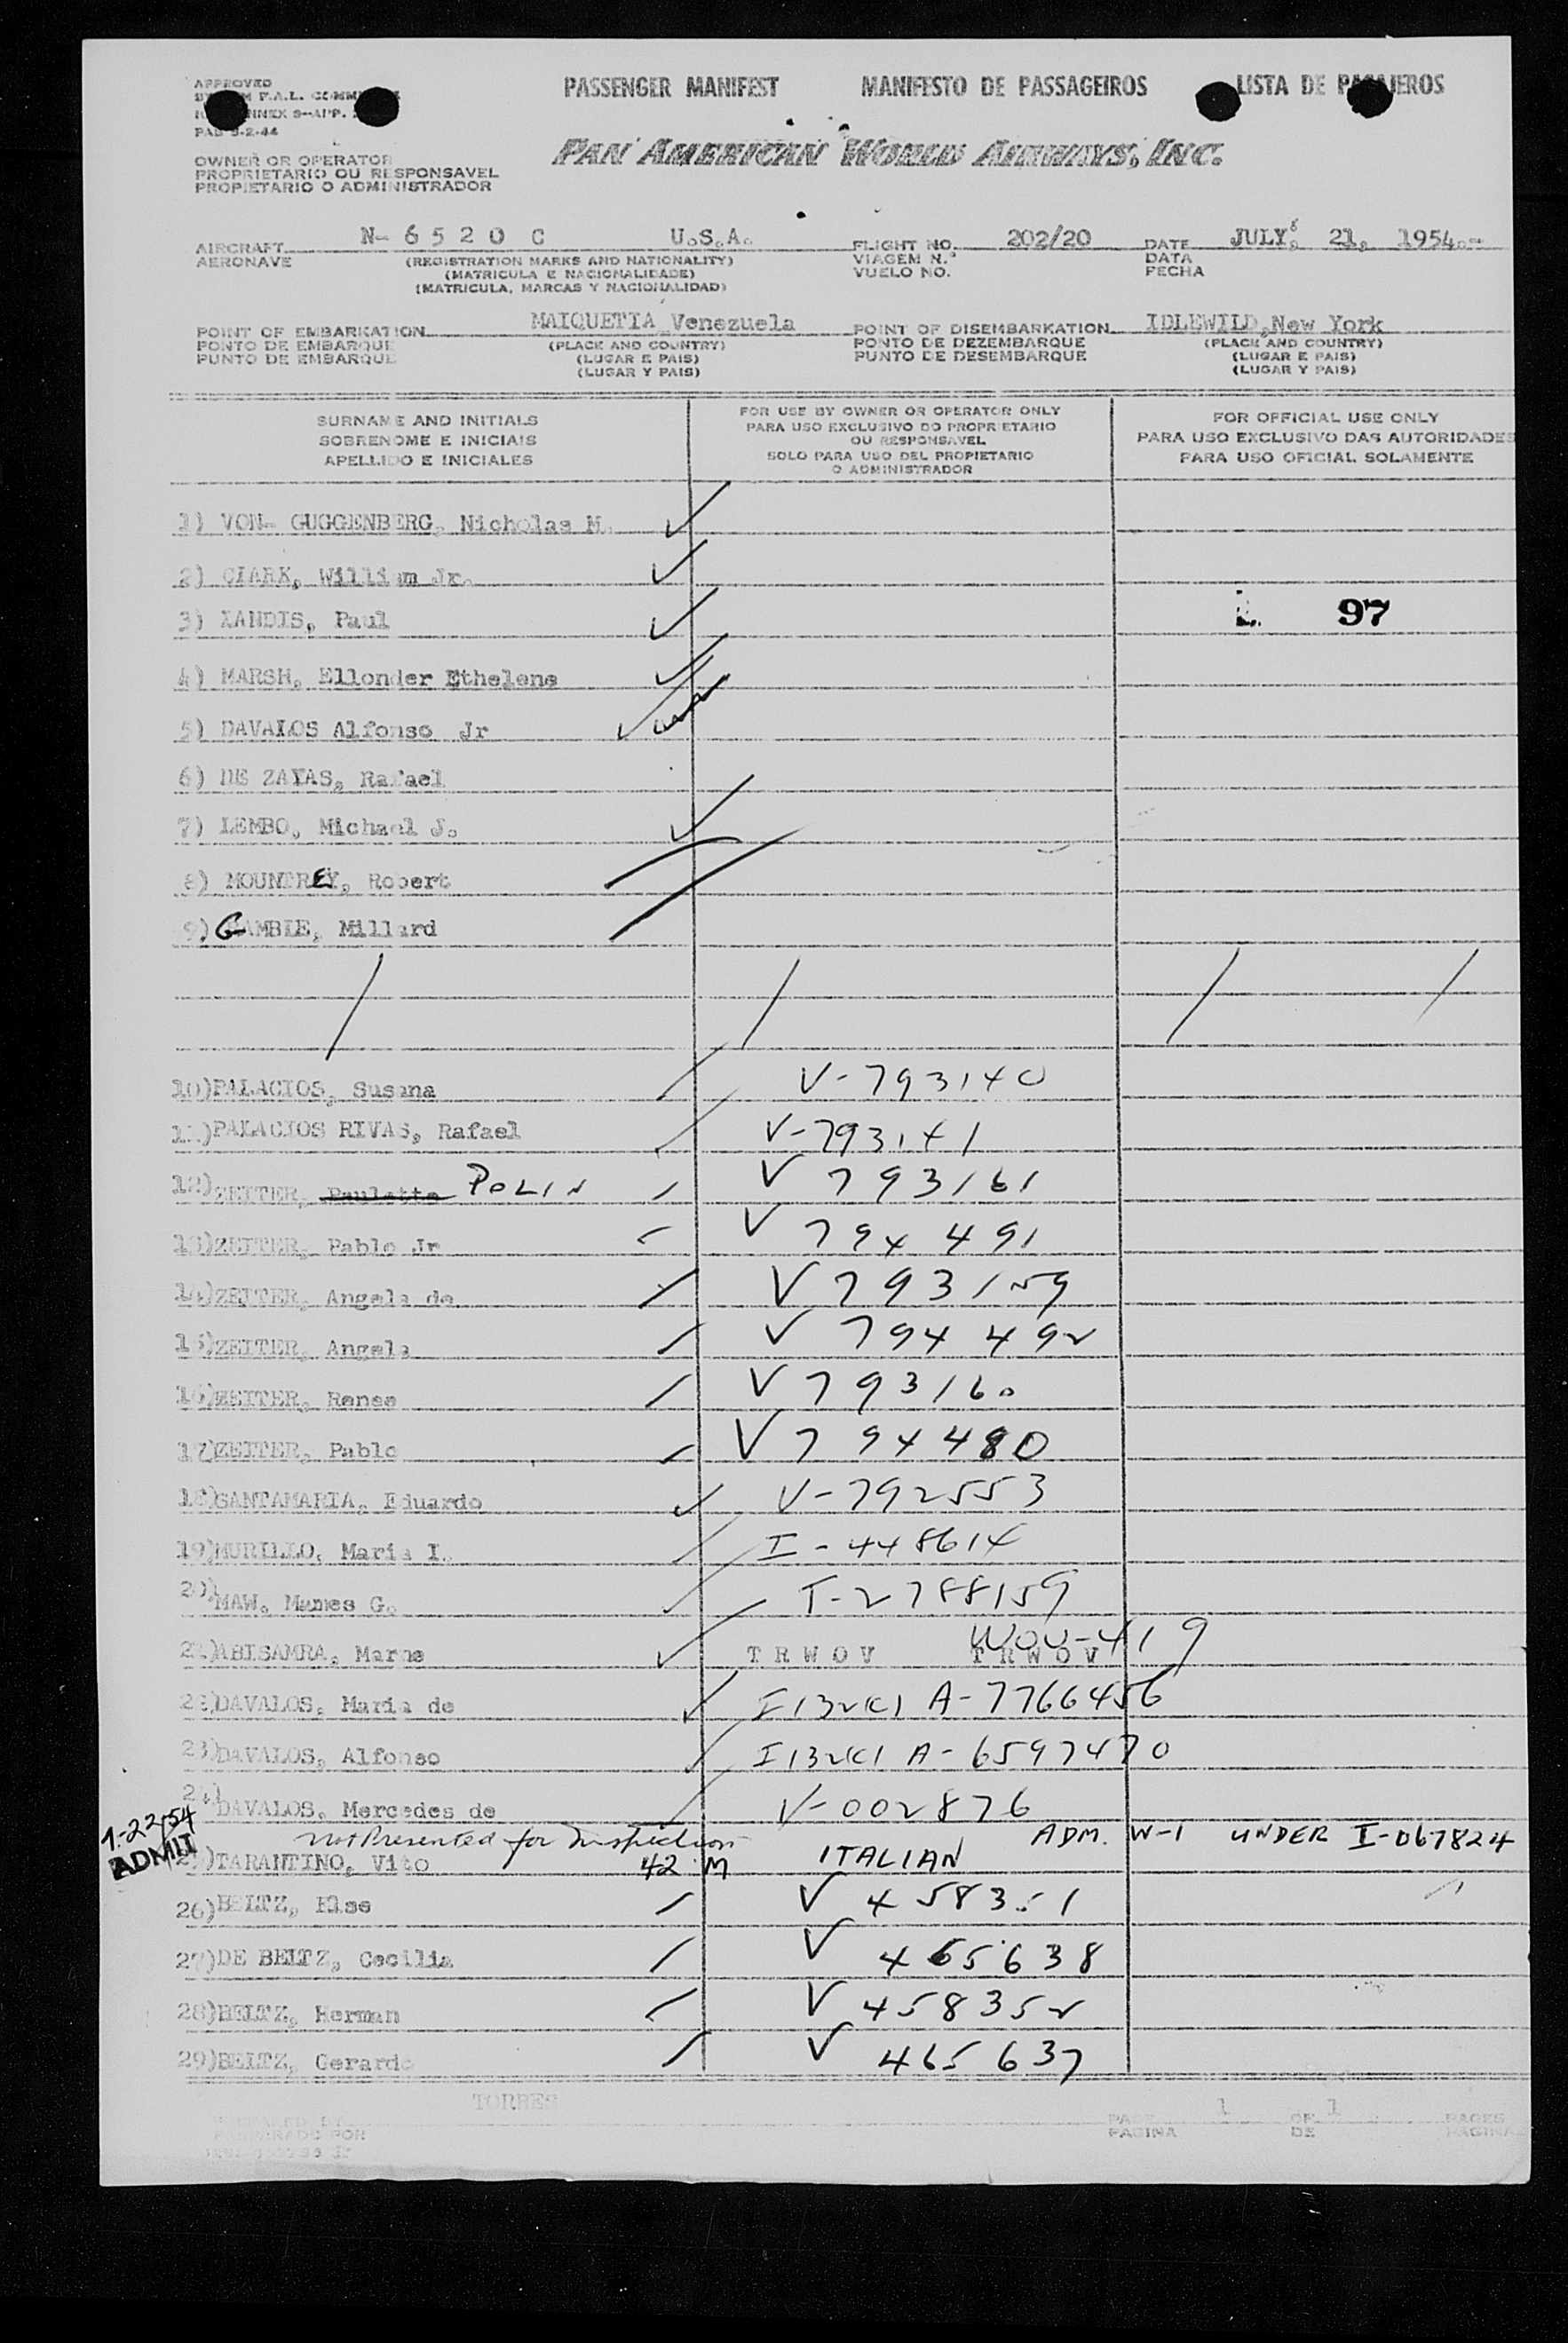 APPROVED
PASSENGER MANIFEST MANIFESTO DE PASSAGEIROS LISTA DE
F.A.L.
PAN AMERICAN WORLD AIRWAYS, INC.
OWNER OR OPERATOR
PROPRIETARIO OU RESPONSAVEL
PROPIETARIO O ADMINISTRADOR
AIRCRAFT N- 6 5 2 0 C U.S.A. FLIGHT NO. 202/20 DATE JULY, 21, 1954
AERONAVE (REGISTRATION MARKS AND NATIONALITY) VIAGEM N.º DATA
(MATRICULA E NACIONALIDADE) VUELO NO. FECHA
(MATRICULA, MARCAS Y NACIONALIDAD)
POINT OF EMBARKATION MAIQUETIA Venezuela POINT OF DISEMBARKATION IDLEWILD, New York
PONTO DE EMBARQUE (PLACE AND COUNTRY) PONTO DE DEZEMBARQUE (PLACE AND COUNTRY)
PUNTO DE EMBARQUE (LUGAR E PAIS) PUNTO DE DESEMBARQUE (LUGAR E PAIS)
(LUGAR Y PAIS) (LUGAR Y PAIS)
SURNAME AND INITIALS FOR USE BY OWNER OR OPERATOR ONLY FOR OFFICIAL USE ONLY
SOBRENOME E INICIAIS PARA USO EXCLUSIVO DO PROPRIETARIO PARA USO EXCLUSIVO DAS AUTORIDADES
OU RESPONSAVEL
APELLIDO E INICIALES SOLO PARA USO DEL PROPIETARIO PARA USO OFICIAL SOLAMENTE
O ADMINISTRADOR
1) VON- GUGGENBERG, Nicholas M.
2) CLARK, William Jr.
3) XANDIS, Paul 97
4) MARSH, Ellonder Ethelene
5) DAVALOS Alfonso Jr
6) DE ZAYAS, Rafael
7) LEMBO, Michael J.
8) MOUNTREY, Robert
9) GAMBLE, Millard
10) PALACIOS, Susana V-793140
11) PALACIOS RIVAS, Rafael V-793141
12) ZEITER, Paulette POLIN V 793161
13) ZEITER, Pablo Jr V 794 491
14) ZEITER, Angela de V 793159
15) ZEITER, Angela V 794 492
16) ZEITER, Renee V 793160
17) ZEITER, Pablo V 794480
18) SANTAMARIA, Eduardo V-792553
19) MURILLO, Maria I. I-448614
20) MAW, Mames G. T-2788159
21) ABISAMRA, Marne T R W O V T R W O V WOV-419
22) DAVALOS, Maria de A-7766456
23) DAVALOS, Alfonso A-6597470
24) DAVALOS, Mercedes de V-002876
-22/54 not Presented for Inspection ADM. W-1 UNDER I-067824
ADMIT 25) TARANTINO, Vito 42 M ITALIAN
26) BEITZ, Else V
27) DE BEITZ, Cecilia V 465638
28) BEITZ, Herman V 458352
29) BEITZ, Gerardo V 465637
TORRES
PAGE 1 OF 1 PAGES
PAGINA DE